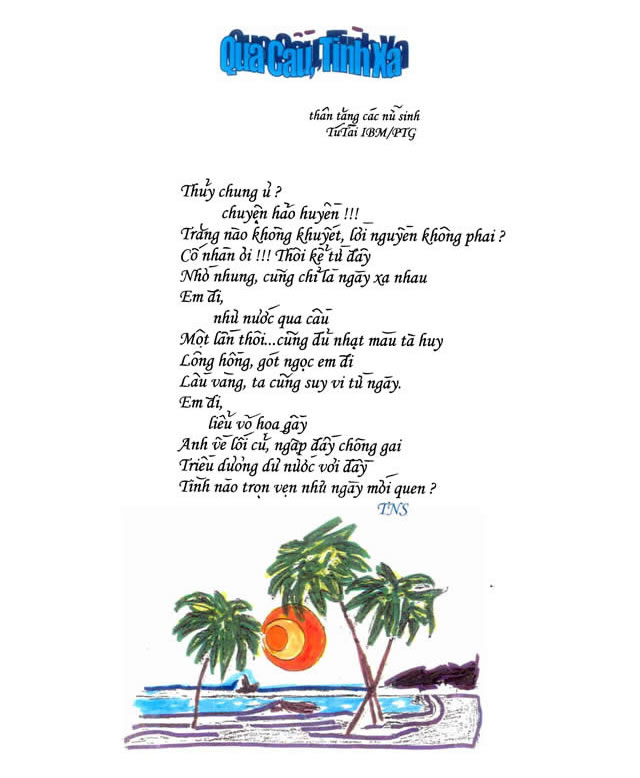 Qua Cầu, Tình Xa
thân tặng các nữ sinh
TúTài IBM/PTG
Thủy chung ư ?
chuyện hảo huyền !!!
Trăng nào không khuyết, lời nguyền không phai ?
Cố nhân ơi !!! Thôi kể từ đây
Nhớ nhung, cũng chỉ là ngày xa nhau
Em đi,
như nước qua cầu
Một lần thôi...cũng đủ nhạt màu tà huy
Lông hồng, gót ngọc em đi
Lầu vàng, ta cũng suy vi từ ngày.
Em đi,
liễu võ hoa gầy
Anh về lối cũ, ngập đầy chông gai
Triều dương dư nước vơi đầy
Tình nào trọn vẹn như ngày mới quen ?
TNS